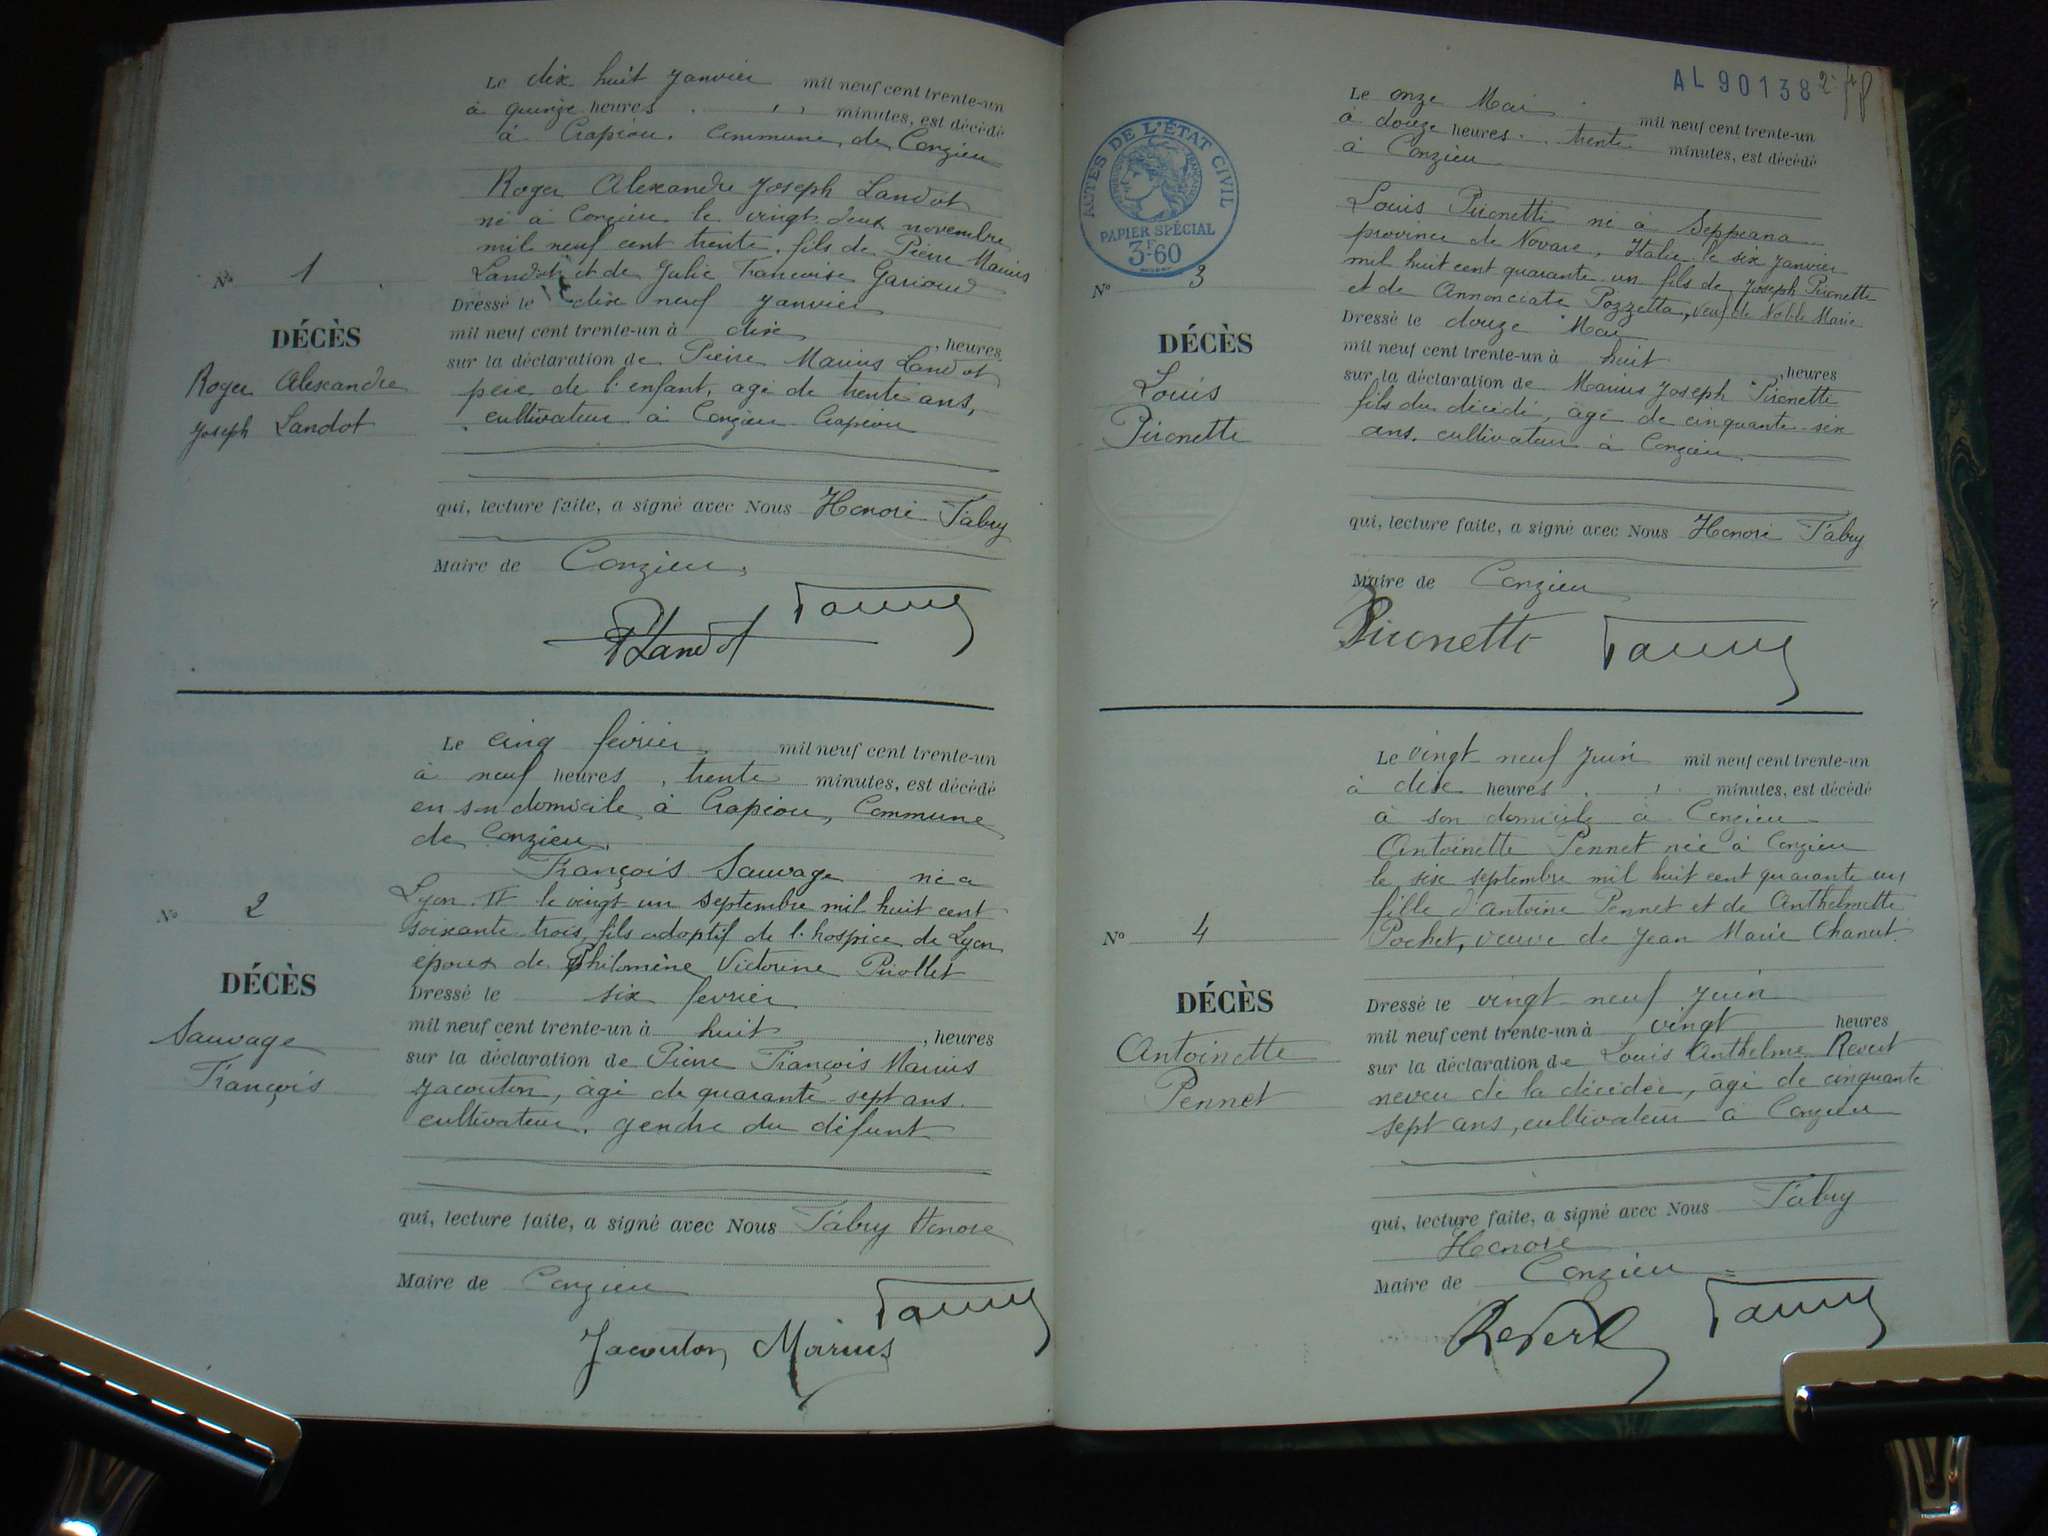 Le dix huit janvier mil neuf cent trente-un
à quinze heures minutes, est décédé
à Crapéou. Commune de Conzieu
Roger Alexandre Joseph Landot
né à Conzieu le vingt deux novembre
mil neuf cent trente. fils de Pierre Marius
Landot et de Julie Francoise Garioud
N° 1
Dressé le dix neuf janvier
DÉCÈS
mil neuf cent trente-un à dix heures
Roger Alexandre
Joseph Landot
sur la déclaration de Pierre Marius Landot
père de l'enfant, agé de trente ans,
cultivateur à Conzieu Crapéou
qui, lecture faite, a signé avec Nous Honoré Tabry
Maire de Conzieu,
PLandot
Le cinq fevrier mil neuf cent trente-un
à neuf heures, trente minutes, est décédé
en son domicile, à Crapéou, Commune
de Conzieu.
François Sauvage né a
Lyon II le vingt un septembre mil huit cent
soixante trois, fils adoptif de l'hospice de Lyon
époux de Philomène Victorine Pirollet
N° 2
Dressé le six fevrier
DÉCÈS
mil neuf cent trente-un à huit, heures
Sauvage
François
sur la déclaration de Pierre François Marius
Jacouton, âgé de quarante-sept ans.
cultivateur. gendre du défunt
qui, lecture faite, a signé avec Nous Tabry Honoré
Maire de Conzieu
Jacouton Marius
AL 90138
ACTES DE L'ÉTAT CIVIL
PAPIER SPÉCIAL
3F.60
Le onze Mai mil neuf cent trente-un
à douze heures. trente minutes, est décédé
à Conzieu
Louis Pironetti né à Seppiana
province de Novare, Italie le six janvier
mil huit cent quarante un fils de Joseph Pironette
et de Annonciate Pozzetta, veuf de Noble Marie
N° 3
Dressé le douze Mai
DÉCÈS
mil neuf cent trente-un à huit, heures
Louis
Pironette
sur la déclaration de Marius Joseph Pironette
fils du décédé, âgé de cinquante-six
ans. cultivateur à Conzieu
qui, lecture faite, a signé avec Nous Honoré Tabry
Maire de Conzieu
Pironette
Le vingt neuf Juin mil neuf cent trente-un
à dix heures minutes, est décédé
à son domicile à Conzieu
Antoinette Pennet née à Conzieu
le six septembre mil huit cent quarante un
fille d'Antoine Pennet et de Anthelmette
Pochet, veuve de Jean Marie Chanut.
N° 4
DÉCÈS
Antoinette
Pennet
Dressé le vingt neuf Juin
mil neuf cent trente-un à vingt heures
sur la déclaration de Louis Anthelme Revert
neveu de la décédée, âgé de cinquante
sept ans, cultivateur à Conzieu
qui, lecture faite, a signé avec Nous Tabry
Honoré
Maire de Conzieu
Revert